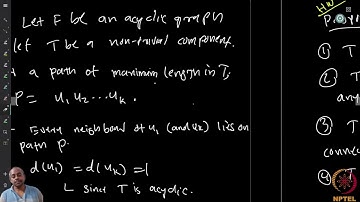 Let F be an acyclic graph
let T be a non-trivial component.
a path of maximum length in T,
P = u1 u2 ... uk.
Every neighbord of u1 (and uk) lies on
path P.
d(u1) = d(uk) = 1
L since T is acyclic.
HW
1
any
2
3 T
connec
4 T
NPTEL